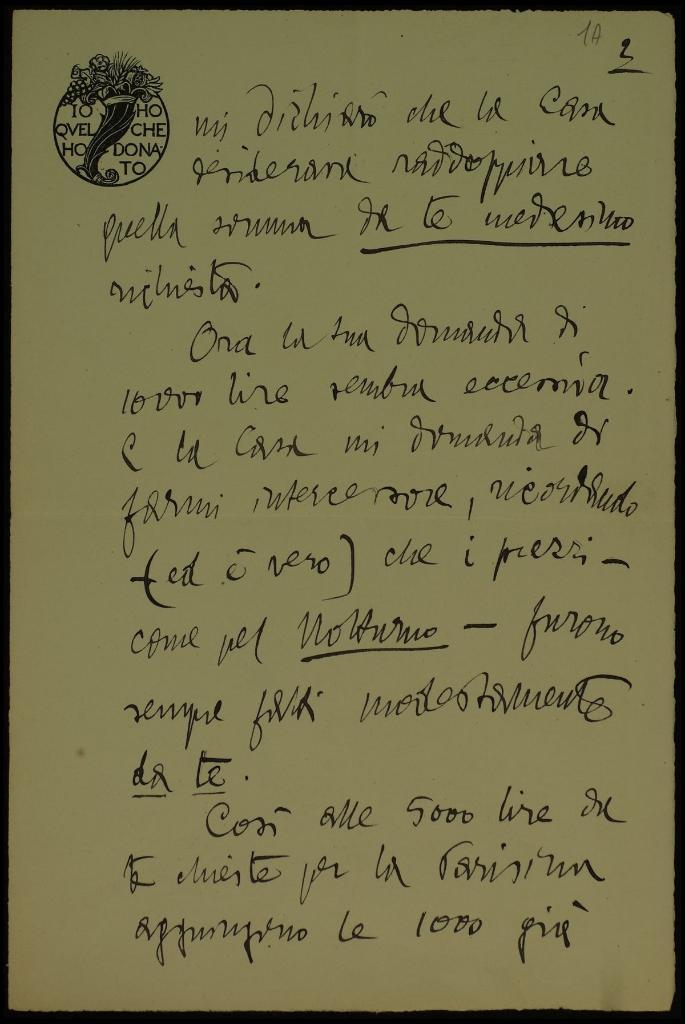 1A
2
IO HO
QVEL CHE
HO DONA
TO
mi dichiarò che la Casa
desiderava raddoppiare
quella somma da te medesimo
richiesta.
Ora la tua domanda di
10000 lire sembra eccessiva.
E la Casa mi domanda di
farmi intercessore, ricordando
- (ed è vero) che i prezzi -
come pel Notturno - furono
sempre fatti modestamente
da te.
Così alle 5000 lire da
te chieste per la Parisina
aggiungono le 1000 già